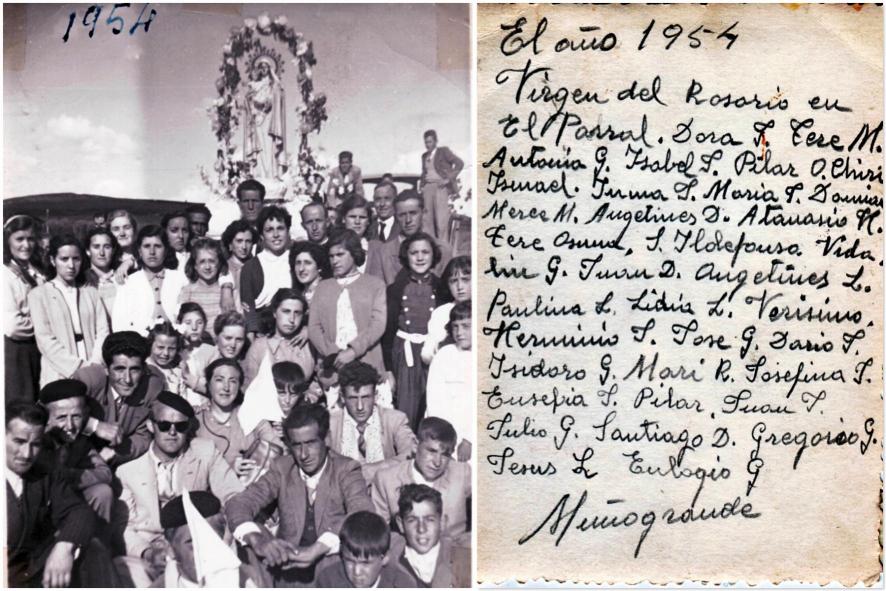 1954
El año 1954
Virgen del Rosario en
El Parral. Dora J. Tere M.
Antonia G. Isabel J. Pilar O. Chiri
Ismael. Inma J. Maria J. Damian
Merce M. Angelines D. Atanasio H.
Tere Osuna, J. Ildefonso. Vida
lin G. Juan D. Angelines L.
Paulina L. Lidia L. Verisimo.
Herminio J. Jose G. Dario J.
Isidoro G. Mari R. Josefina J.
Eusefia J. Pilar, Juan J.
Julio G. Santiago D. Gregorio G.
Jesus L. Eulogio G
Muñogrande